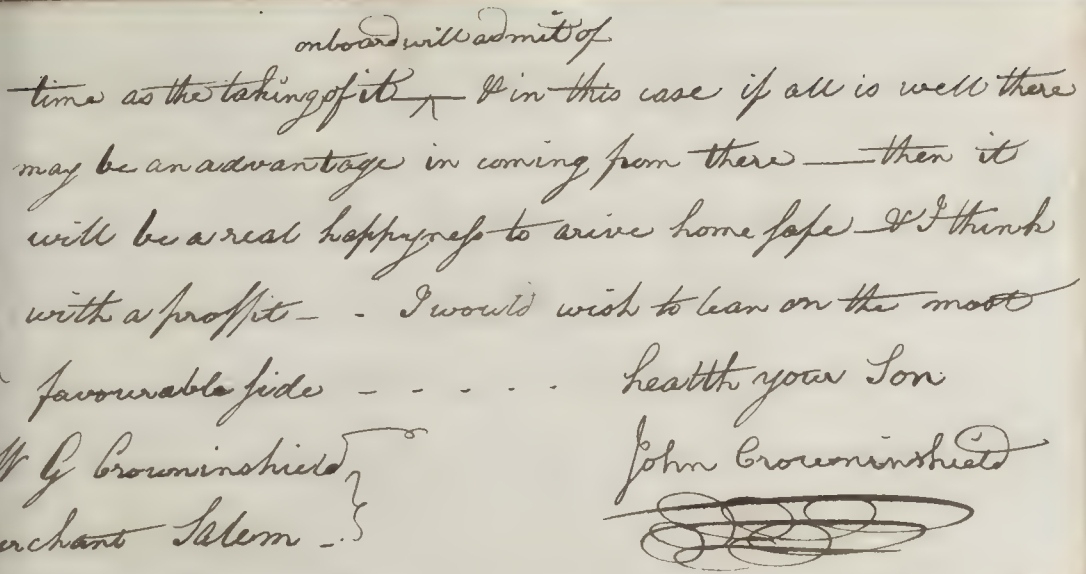 onboard will admit of
time as the taking of it — & in this case if all is well there
may be an advantage in coming from there — then it
will be a real happyness to arive home safe — & I think
with a proffit - - I would wish to lean on the most
favourable side - - - - - health your Son
G Crowninshield John Crowninshield
Salem -